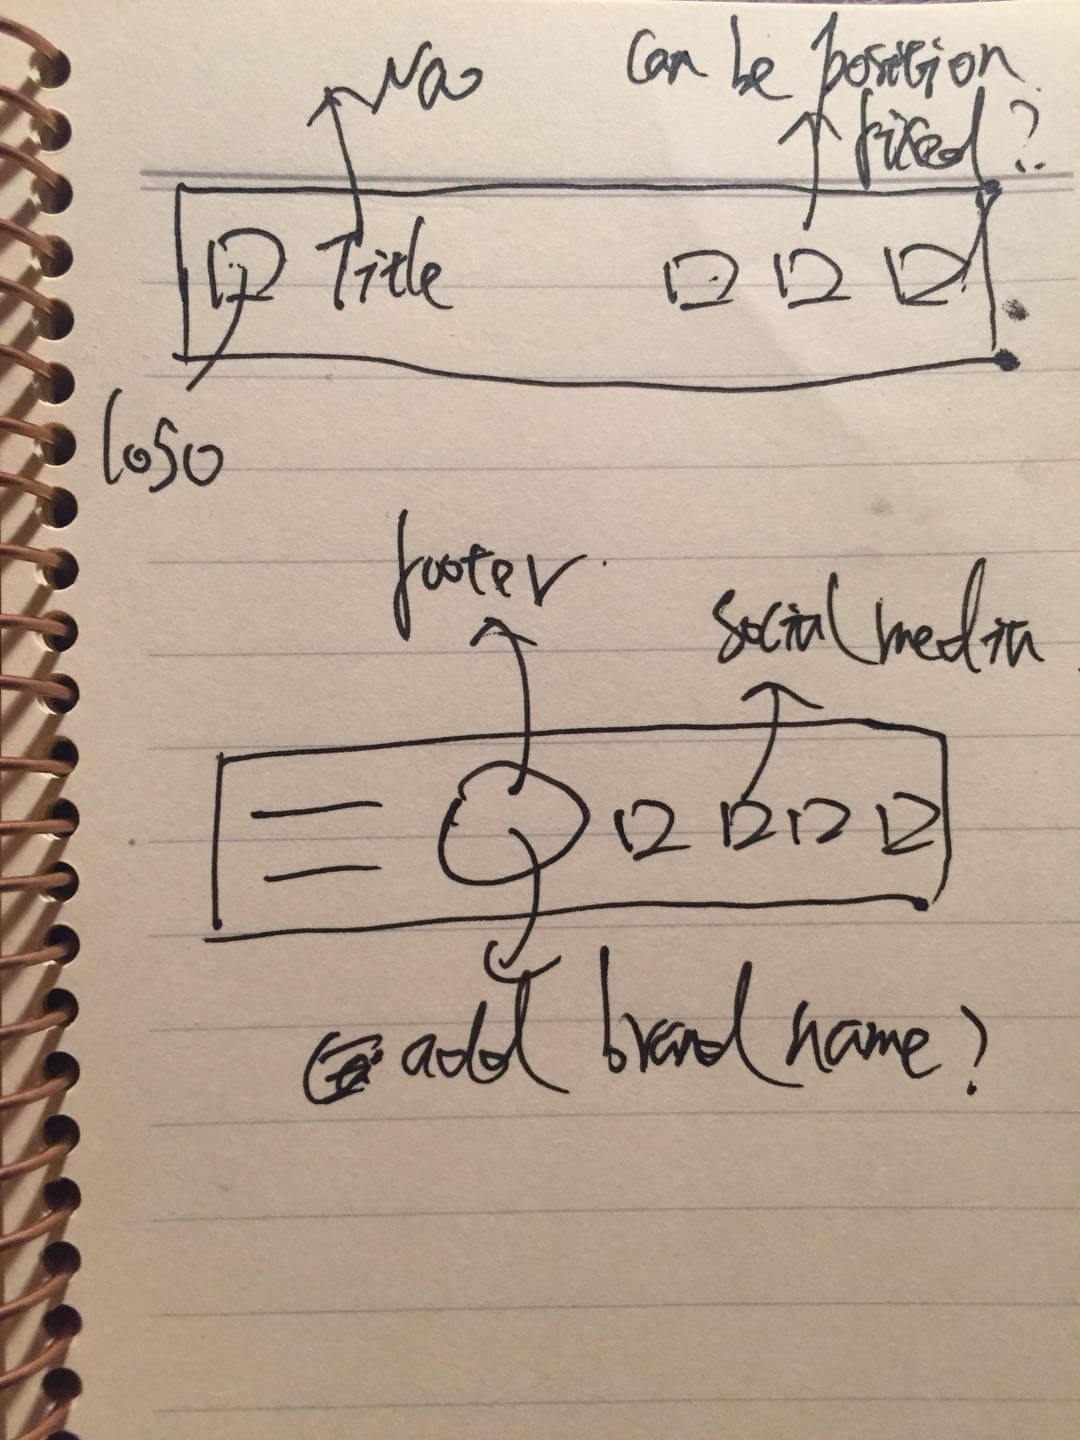 Na
can be position
fixed?
Title
logo
footer
social media
add brand name?